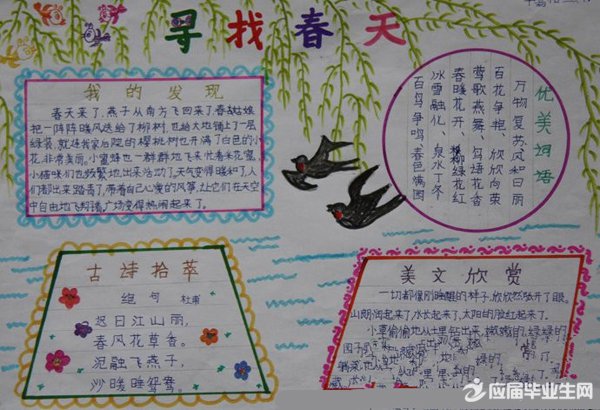 寻找春天
我的发现
春天来了,燕子从南方飞回来了,春姑娘
把一阵阵暖风送给了柳树,也给大地铺上了一层
绿装,就连爷家后院的樱桃树也开满了白色的小
花,非常美丽。小蜜蜂也一群群地飞来忙着采花蜜,
小猫咪们也频繁地出来活动了,天气变得暖和了,人
们都出来踏青了,带着自己心爱的风筝,让它们在天空
中自由地飞翔,广场变得热闹起来了。
优美词语
万物复苏 风和日丽
百花争艳、欣欣向荣
莺歌燕舞、鸟语花香
春暖花开、柳绿花红
冰雪融化、泉水丁冬
百鸟争鸣、春色满园
古诗拾萃
绝句 杜甫
迟日江山丽,
春风花草香。
泥融飞燕子,
沙暖睡鸳鸯。
美文欣赏
一切都像刚睡醒的样子,欣欣然张开了眼。
山朗润起来了,水长起来了,太阳的脸红起来了。
小草偷偷地从土里钻出来,嫩嫩的,绿绿的
应届毕业生网